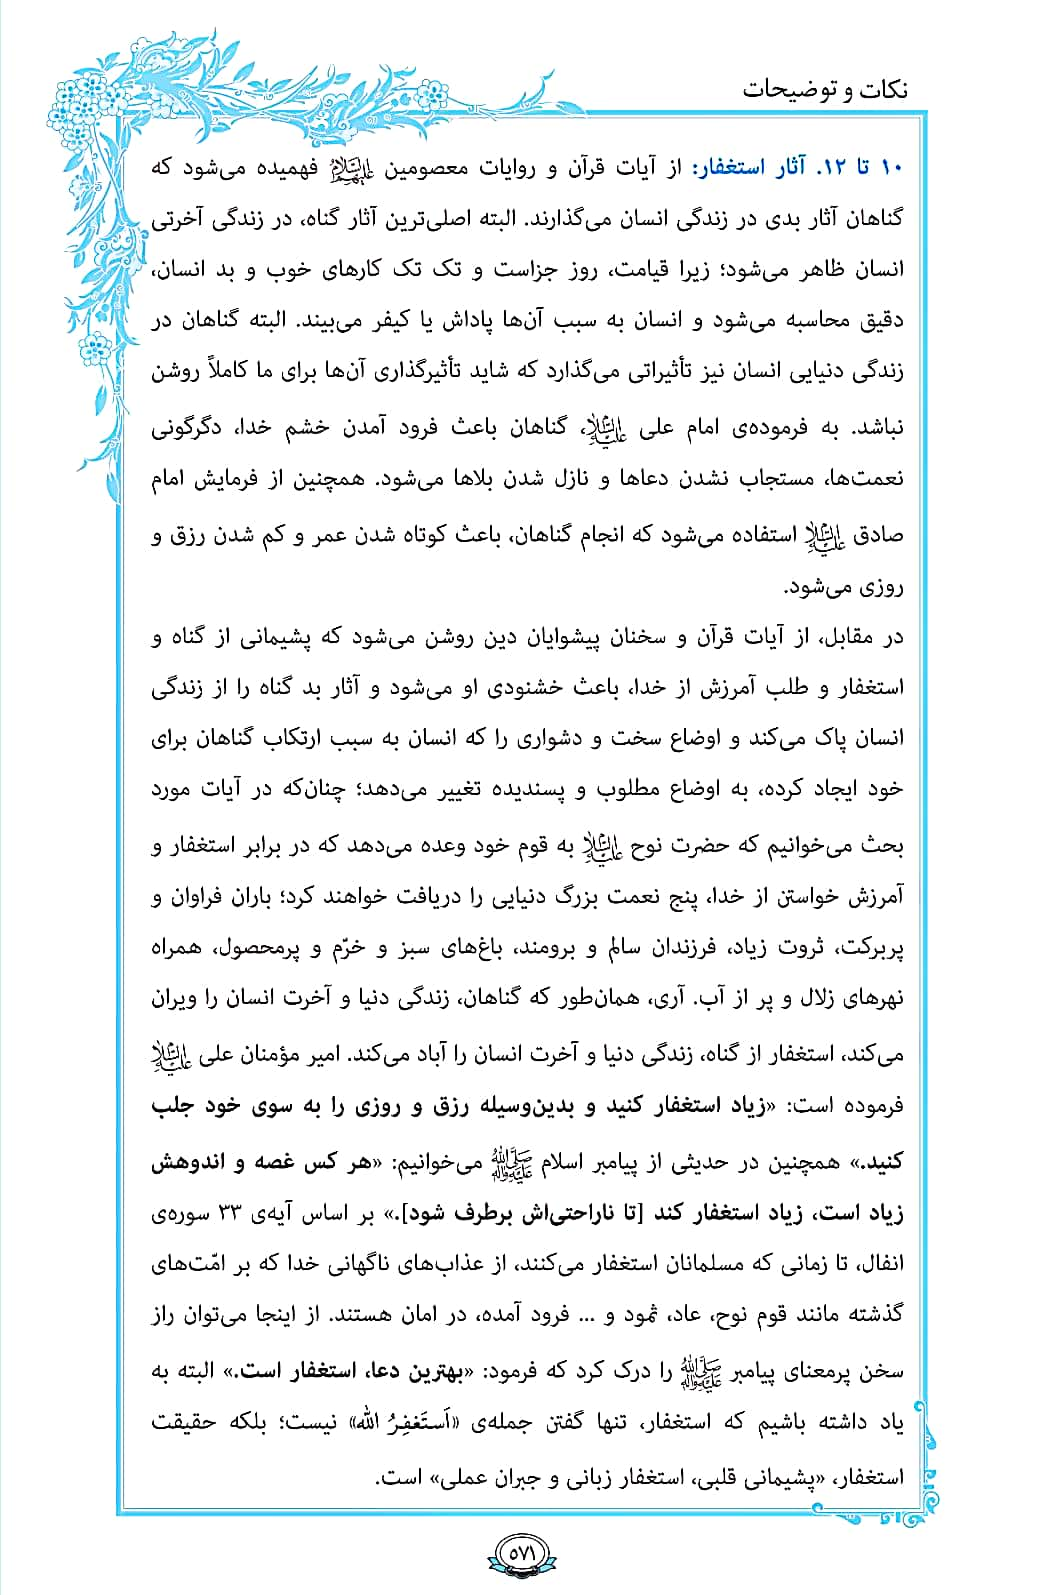 نکات و توضیحات
۱۰ تا ۱۲. آثار استغفار: از آیات قرآن و روایات معصومین علیهم‌السلام فهمیده می‌شود که
گناهان آثار بدی در زندگی انسان می‌گذارند. البته اصلی‌ترین آثار گناه، در زندگی آخرتی
انسان ظاهر می‌شود؛ زیرا قیامت، روز جزاست و تک تک کارهای خوب و بد انسان،
دقیق محاسبه می‌شود و انسان به سبب آن‌ها پاداش یا کیفر می‌بیند. البته گناهان در
زندگی دنیایی انسان نیز تأثیراتی می‌گذارد که شاید تأثیرگذاری آن‌ها برای ما کاملاً روشن
نباشد. به فرموده‌ی امام علی علیه‌السلام، گناهان باعث فرود آمدن خشم خدا، دگرگونی
نعمت‌ها، مستجاب نشدن دعاها و نازل شدن بلاها می‌شود. همچنین از فرمایش امام
صادق علیه‌السلام استفاده می‌شود که انجام گناهان، باعث کوتاه شدن عمر و کم شدن رزق و
روزی می‌شود.
در مقابل، از آیات قرآن و سخنان پیشوایان دین روشن می‌شود که پشیمانی از گناه و
استغفار و طلب آمرزش از خدا، باعث خشنودی او می‌شود و آثار بد گناه را از زندگی
انسان پاک می‌کند و اوضاع سخت و دشواری را که انسان به سبب ارتکاب گناهان برای
خود ایجاد کرده، به اوضاع مطلوب و پسندیده تغییر می‌دهد؛ چنان‌که در آیات مورد
بحث می‌خوانیم که حضرت نوح علیه‌السلام به قوم خود وعده می‌دهد که در برابر استغفار و
آمرزش خواستن از خدا، پنج نعمت بزرگ دنیایی را دریافت خواهند کرد؛ باران فراوان و
پربرکت، ثروت زیاد، فرزندان سالم و برومند، باغ‌های سبز و خرّم و پرمحصول، همراه
نهرهای زلال و پر از آب. آری، همان‌طور که گناهان، زندگی دنیا و آخرت انسان را ویران
می‌کند، استغفار از گناه، زندگی دنیا و آخرت انسان را آباد می‌کند. امیر مؤمنان علی علیه‌السلام
فرموده است: «زیاد استغفار کنید و بدین‌وسیله رزق و روزی را به سوی خود جلب
کنید.» همچنین در حدیثی از پیامبر اسلام صلی‌الله‌علیه‌وآله می‌خوانیم: «هر کس غصه و اندوهش
زیاد است، زیاد استغفار کند [تا ناراحتی‌اش برطرف شود].» بر اساس آیه‌ی ۳۳ سوره‌ی
انفال، تا زمانی که مسلمانان استغفار می‌کنند، از عذاب‌های ناگهانی خدا که بر امّت‌های
گذشته مانند قوم نوح، عاد، ثمود و ... فرود آمده، در امان هستند. از اینجا می‌توان راز
سخن پرمعنای پیامبر صلی‌الله‌علیه‌وآله را درک کرد که فرمود: «بهترین دعا، استغفار است.» البته به
یاد داشته باشیم که استغفار، تنها گفتن جمله‌ی «اَستَغفِرُ الله» نیست؛ بلکه حقیقت
استغفار، «پشیمانی قلبی، استغفار زبانی و جبران عملی» است.
۵۷۱